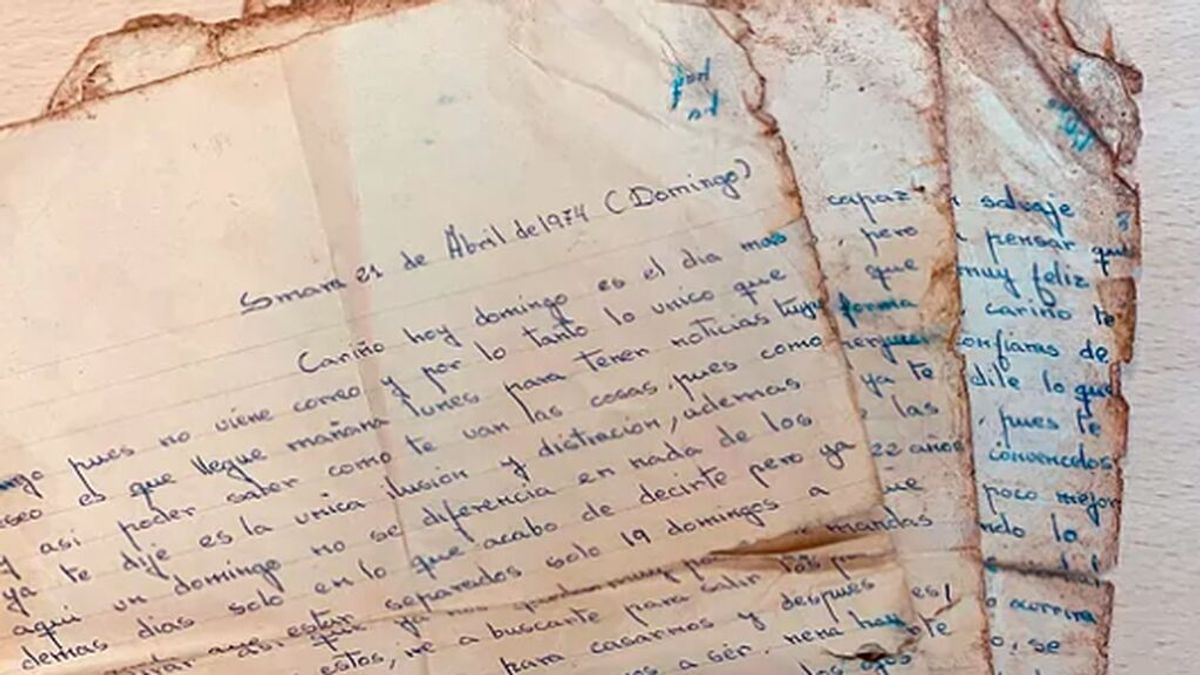 Smara 21 de Abril de 1974 (Domingo)
Cariño hoy domingo es el dia mas
pues no viene correo y por lo tanto lo unico que
es que llegue mañana lunes para tener noticias tuyas
y asi poder saber como te van las cosas, pues como
ya te dije es la unica ilusion y distracion, ademas
aqui un domingo no se diferencia en nada de los
demas dias solo en lo que acabo de decirte pero ya
estar separados solo 19 domingos a
estos, ire a buscarte para salir los
para casarnos y despues
a sér, nena hay
los ojos
capaz
, pero
que
forma
ya te
las
22 años
que
mandas
es!
te
salvaje
3
pensar que
muy feliz
cariño te
confiaras de
dile lo que
, pues te
convencelos
poco mejor
lo
o, se